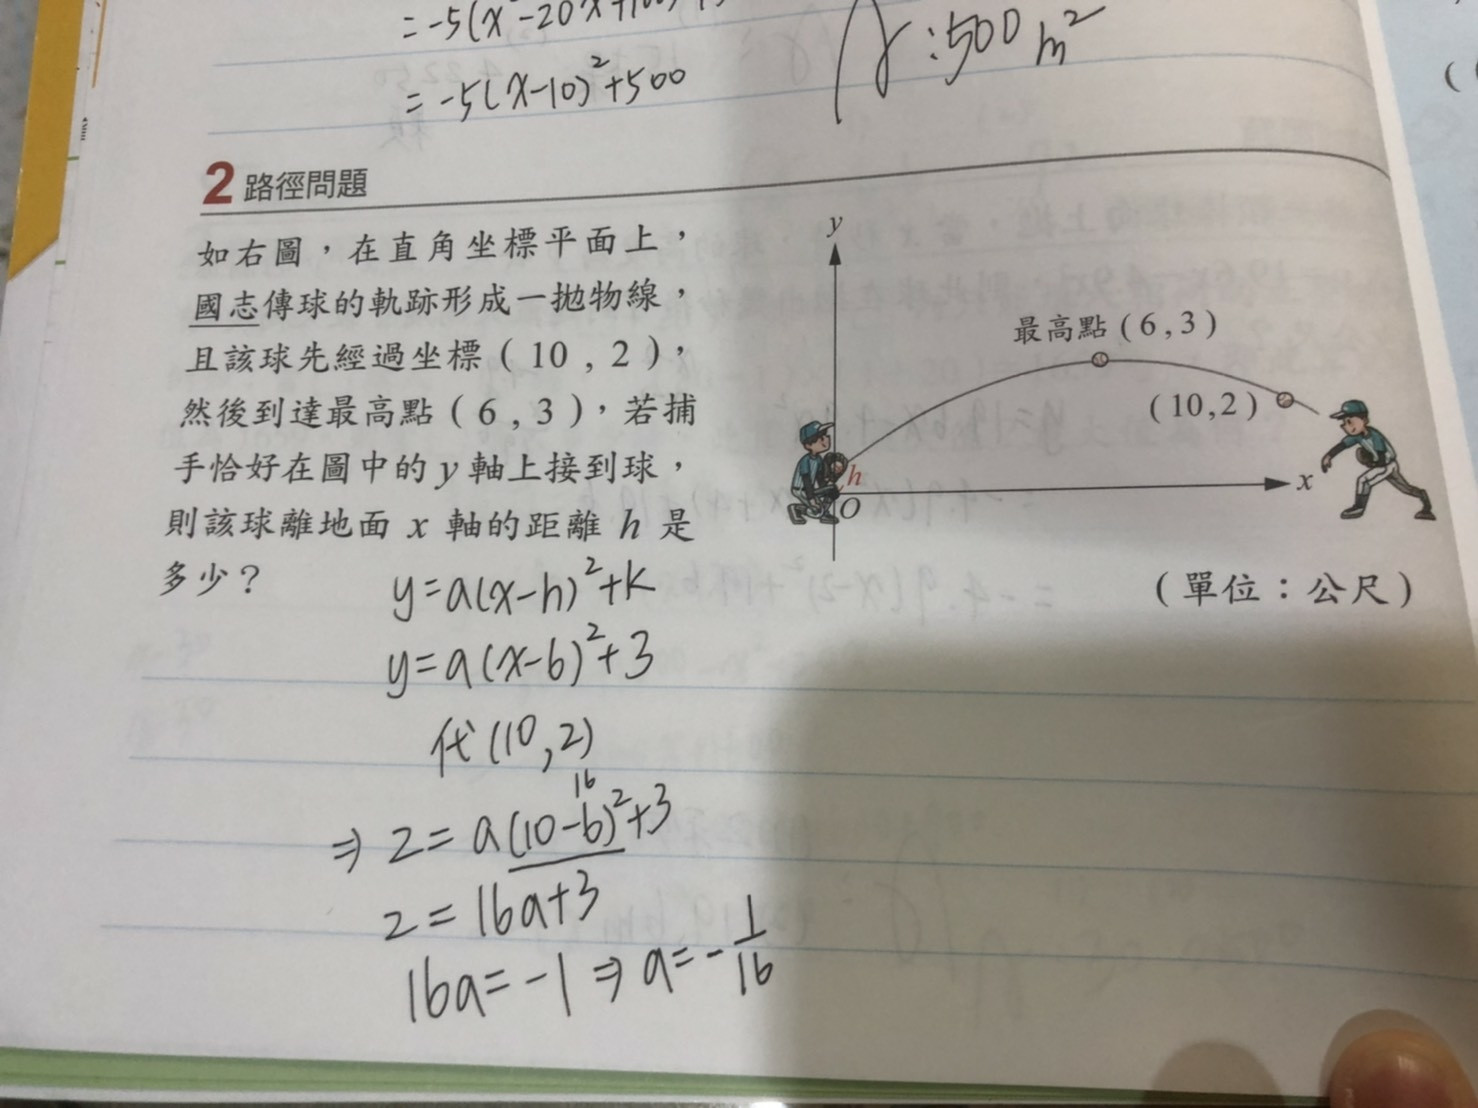 = -5(x²-20x+100)
= -5(x-10)²+500
A:500 m²
2 路徑問題
如右圖，在直角坐標平面上，
國志傳球的軌跡形成一拋物線，
且該球先經過坐標(10，2)，
然後到達最高點(6，3)，若捕
手恰好在圖中的y軸上接到球，
則該球離地面 x 軸的距離 h 是
多少？
y
最高點(6,3)
(10,2)
h
O
x
(單位：公尺)
y=a(x-h)²+k
y=a(x-6)²+3
代(10,2)
16
⇒ 2=a(10-6)²+3
2=16a+3
16a=-1⇒a=-1/16